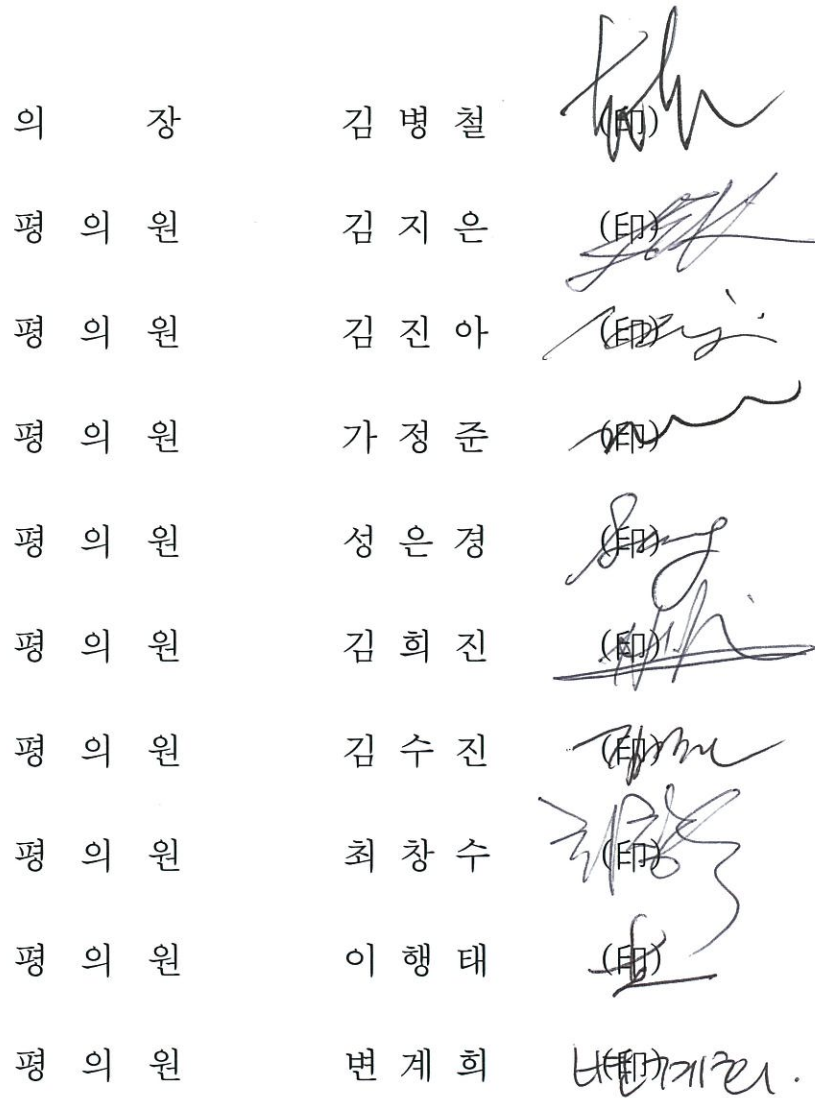 의 장 김 병 철 (印)
평 의 원 김 지 은 (印)
평 의 원 김 진 아 (印)
평 의 원 가 정 준 (印)
평 의 원 성 은 경 (印)
평 의 원 김 희 진 (印)
평 의 원 김 수 진 (印)
평 의 원 최 창 수 (印)
평 의 원 이 행 태 (印)
평 의 원 변 계 희 (印)